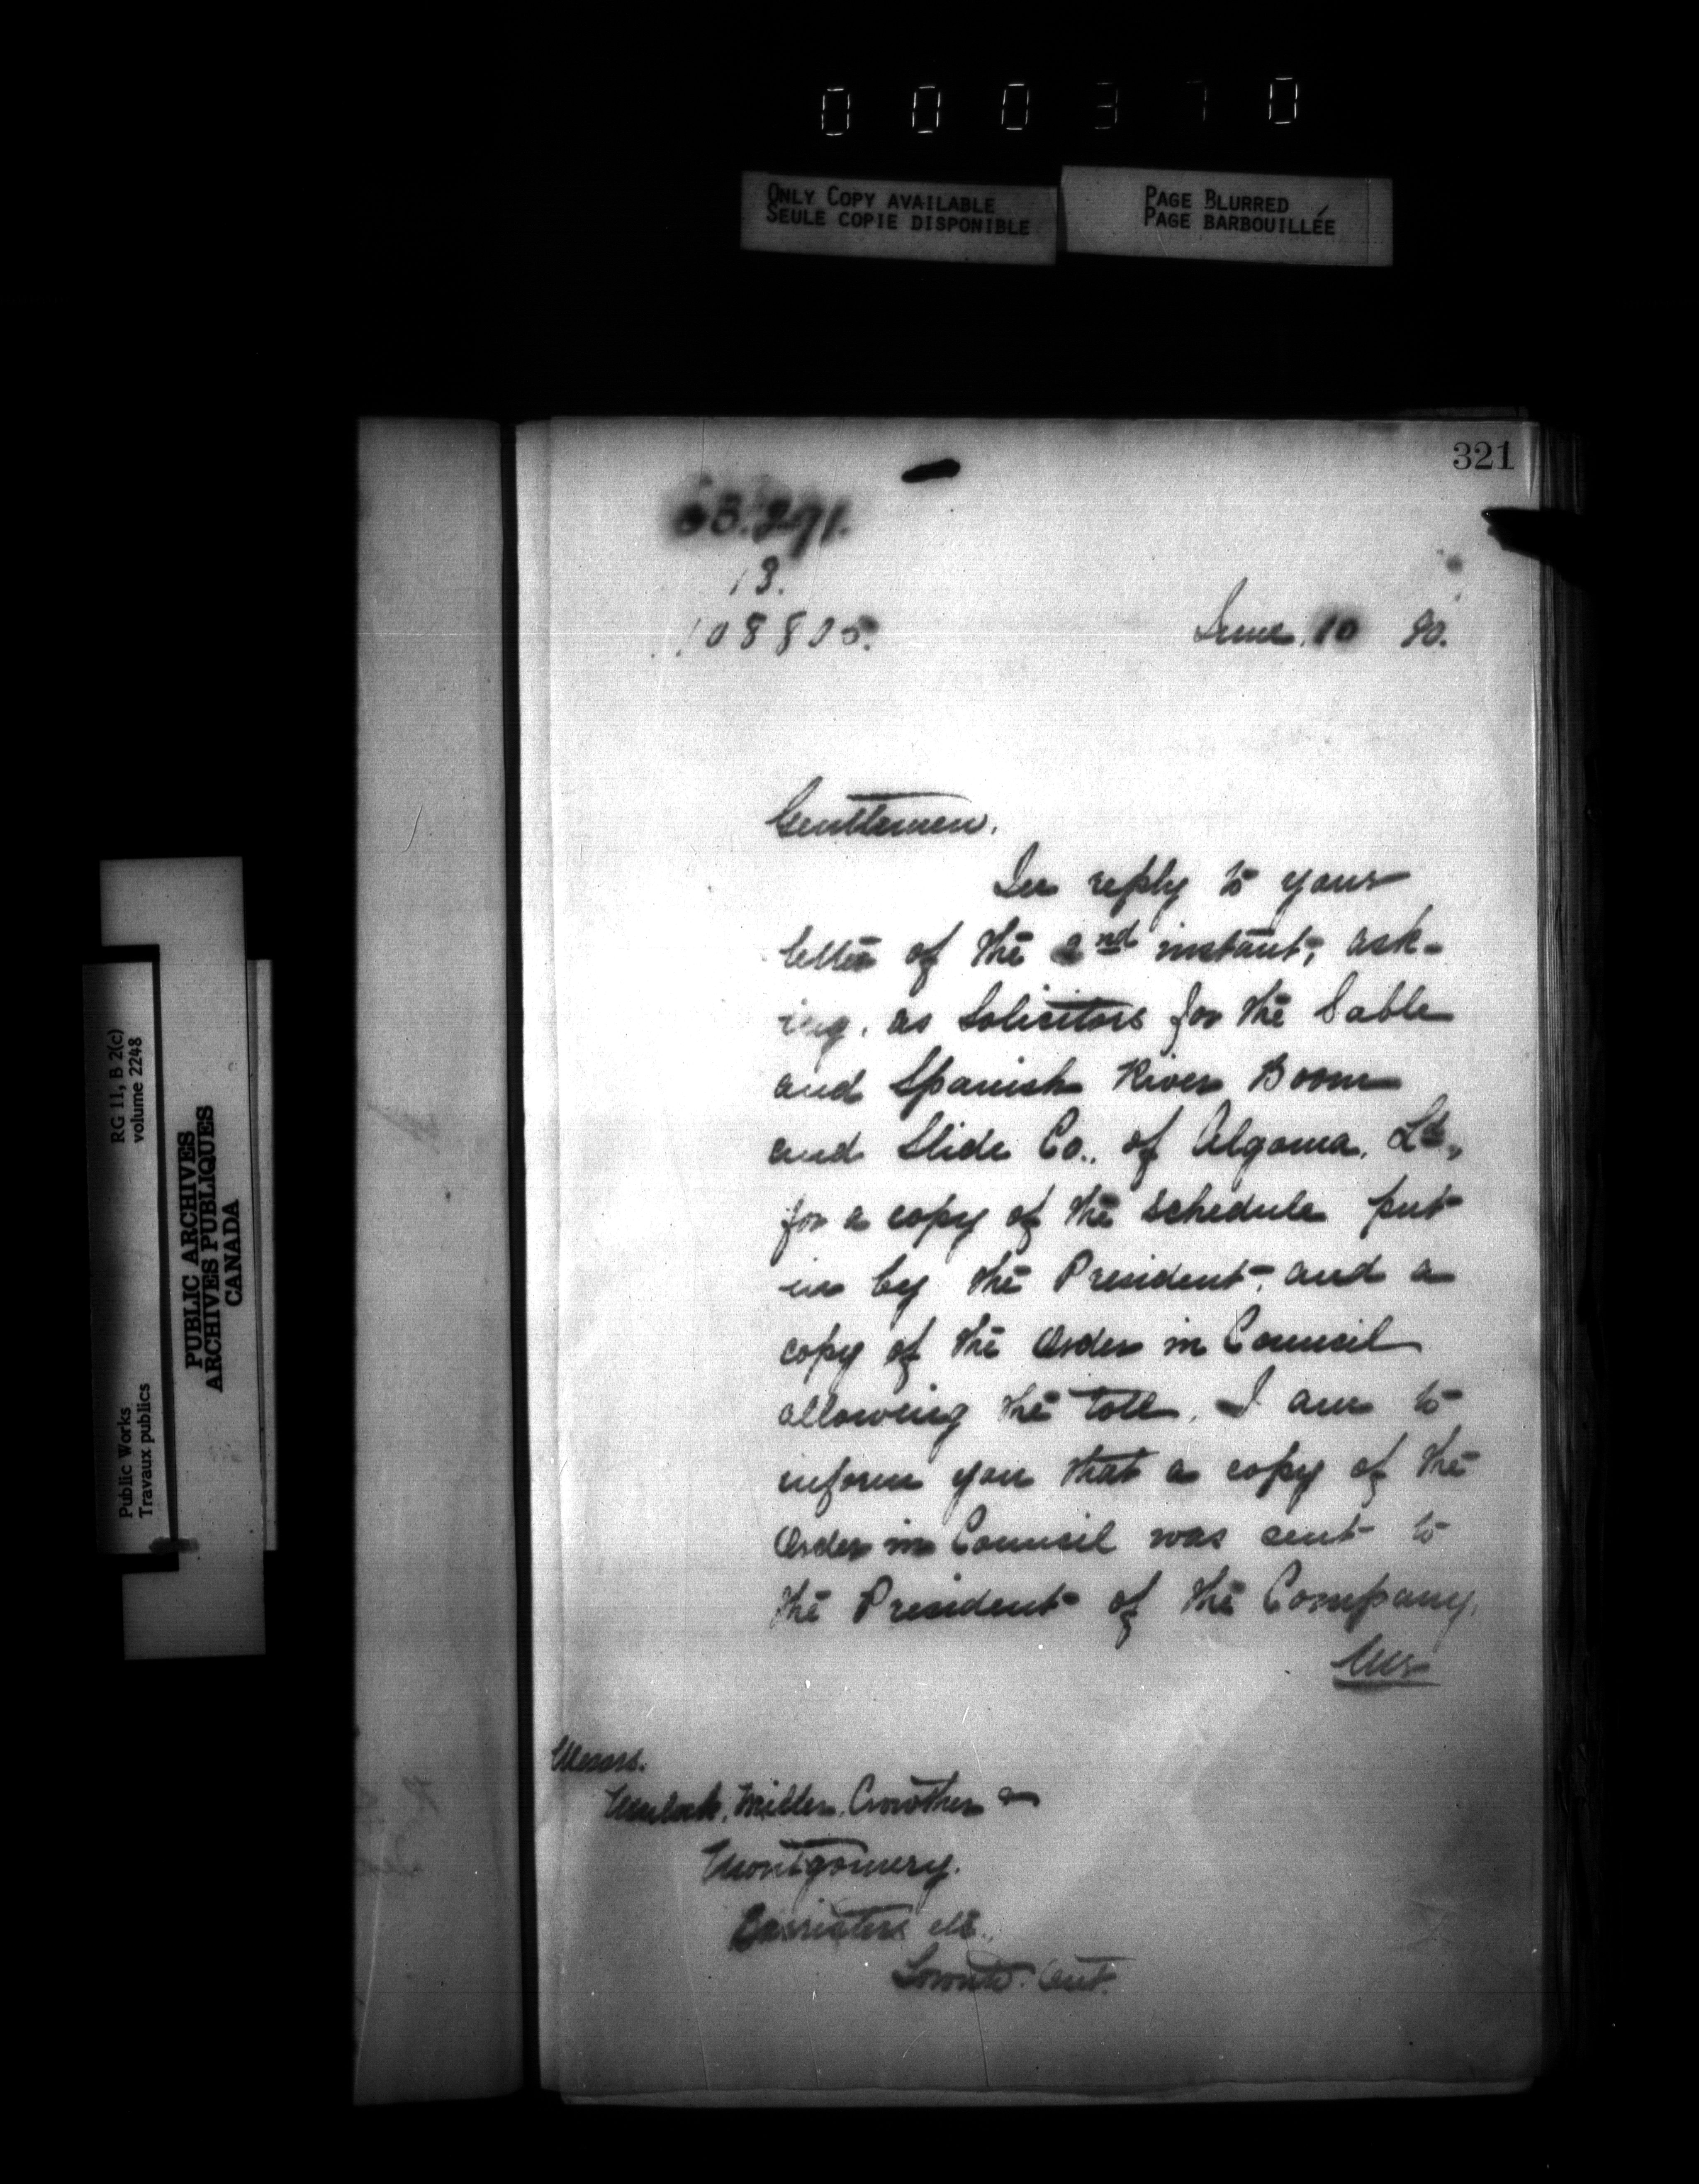 000370
ONLY COPY AVAILABLE
SEULE COPIE DISPONIBLE
PAGE BLURRED
PAGE BARBOUILLÉE
321
13.
June 10 90.
Gentlemen.
In reply to your
letter of the 2nd instant, ask-
ing, as Solicitors for the Sable
and Spanish River Boom
and Slide Co., of Algoma, Ld.,
for a copy of the schedule put
in by the President, and a
copy of the Order in Council
allowing the toll, I am to
inform you that a copy of the
Order in Council was sent to
the President of the Company,
Mr
Messrs.
Mulock, Miller, Crowther &
Montgomery.
Barristers etc.,
Toronto. Ont.
RG 11, B 2(c)
volume 2248
PUBLIC ARCHIVES
ARCHIVES PUBLIQUES
CANADA
Public Works
Travaux publics